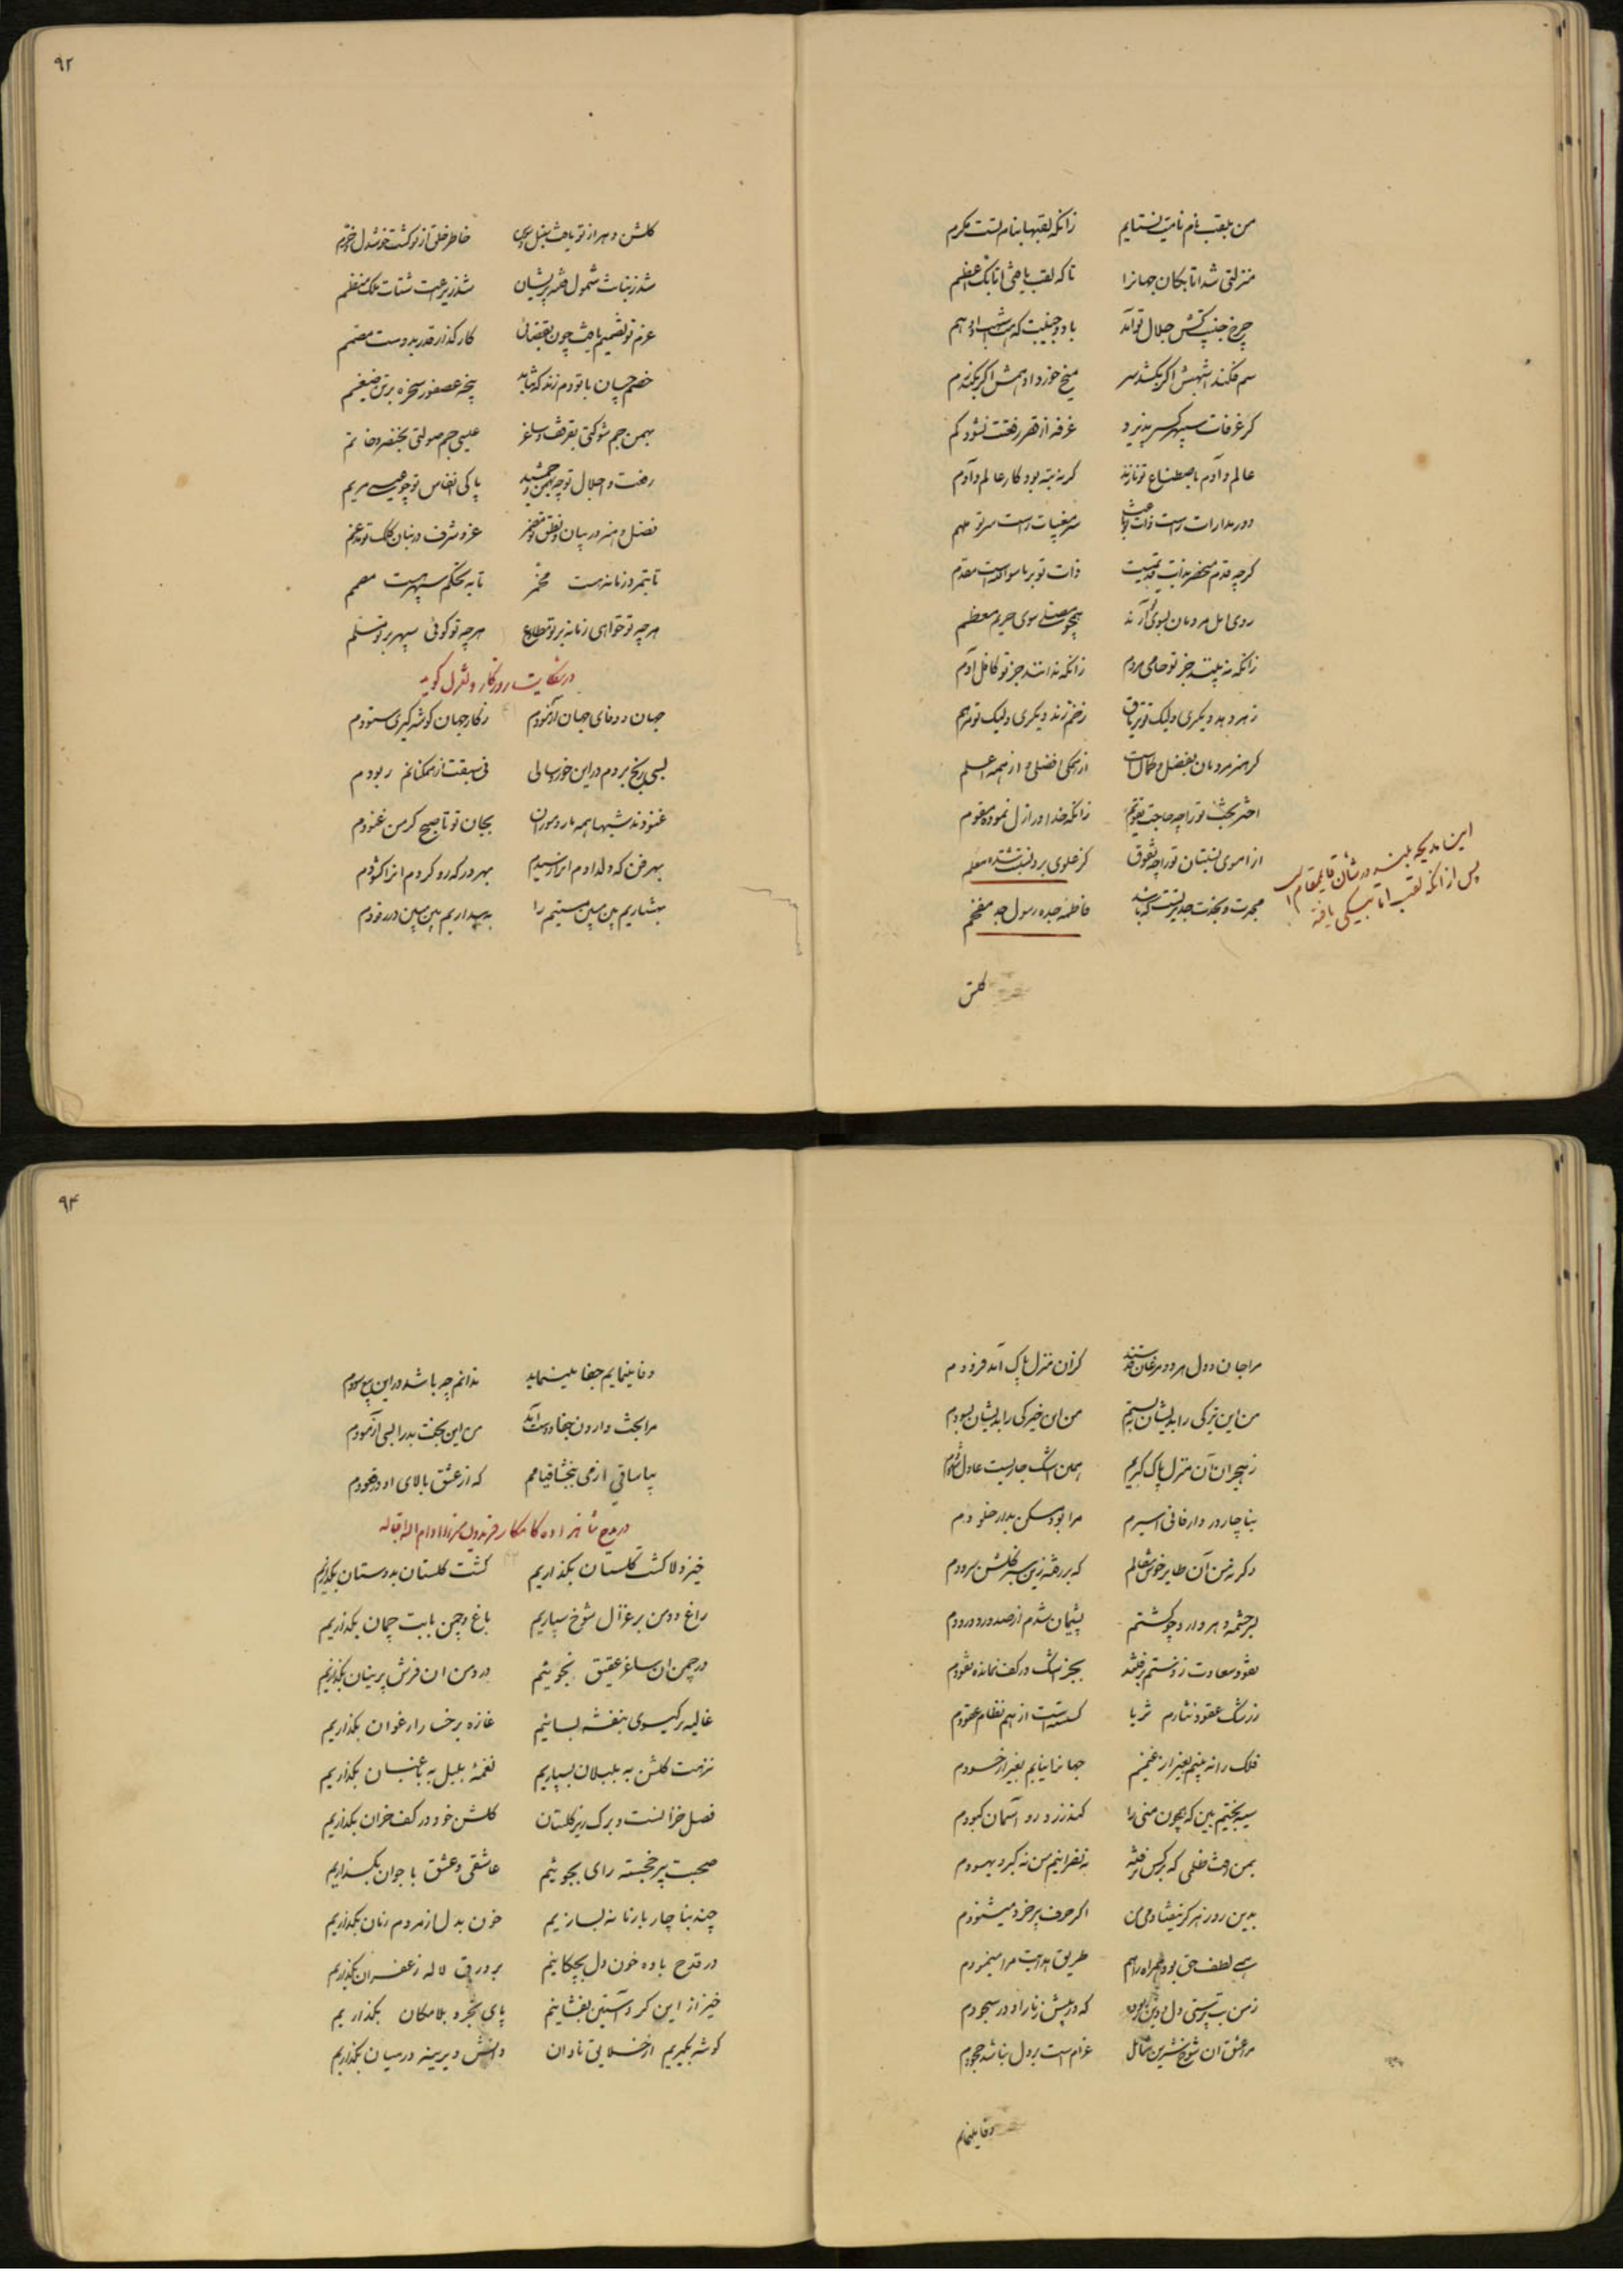 من بلقب نام نامیت نستایم زانکه لقبها بنام تست مکرم
منزلتی شد اتابکان جهانرا تا که لقب یافتی اتابک اعظم
چرخ جنیبت کش جلال تو آمد با دو جنیبت که اشهب و ادهم
سم فکند اشهبش اگر بکشد سر میخ خورد ادهمش اگر بکند رم
گر غرفات سپهر کسر پذیرد غرفه از قصر رفعتت نشود کم
عالم و آدم باصطناع تو نازند گر نه بته بود کار عالم و آدم
دور مدارات راست ذات تو باعث سر مغیبات راست سر تو ملهم
گرچه قدم منحصر بذات قدیمست ذات تو بر ماسوا الله است مقدم
روی امل مردمان بسوی تو آرند همچو مصلی سوی حریم معظم
زانکه نه بینند جز تو حامی مردم زانکه ندانند جز تو کافل آدم
زهر دهد دیگری ولیک تو تریاق زخم زند دیگری ولیک تو مرهم
گر هنر مردمان بفضل و کمال است از همگی افضلی و از همه اعلم
اختر بخت تو را چه حاجت تقویم زانکه خدا در ازل نموده مقوم
از اموی نسبتان تو را چه تفوق کز علوی بر دلت نشسته معلم
مجدت و بخت جد بر تست که باشد فاطمه جده رسول جد مفخم
این مدیحه بلند در شأن قایممقام است
پس از انکه لقب اتابیکی یافته
گلشن
۹۲
گلشن دهر از تو یافت خاطر خلق از تو گشت خوشدل و خرم
شد ز بنانت شمول پریشان شد ز یراعت شتات ملک منظم
عزم تو تصمیم یافت چون بقضائی کار گذار قدر بدوست مصمم
خصم چسان با تو دم زند که نشاید پنجه عصفور سخره بر تن ضیغم
بهمن جم شوکتی بقرقف و ساغر عیسی جم صولتی بخنصر و خاتم
رفعت و اجلال تو چو بهمن و جمشید پاکی انفاس تو چو عیسی مریم
فضل و هنر در بیان و نطق تو مضمر عز و شرف در بنان کلک تو مدغم
تا بتمر زمانه هست مخمر تا به تحکم سپهر هست مصمم
هرچه تو خواهی زمانه بر تو مطاوع هرچه تو گوئی سپهر بر تو مسلم
در شکایت روزگار و تغزل گوید
جهان و وفای جهان آزمودم ز کار جهان گوشه گیری ستودم
بسی رنج بردم در این خورد سالی فی سبقت از همگنانم ربودم
غنودند شبها همه مار و موران بجان تو تا صبح گر من غنودم
بهر فن که ولدادم آنرا رسیدم بهر در که رو کردم آنرا گشودم
بهشیاریم بین مبین مستیم را به بیداریم بین مبین در رقودم
مرا جان و دل هر دو مرغان قدسند کز آن منزل پاک آمد فرودم
من این ترکی را بدیشان ببستم من این خیرگی را بدیشان بسودم
ز هجران آن منزل پاک گریم همین اشک جاریست عادل شهودم
بناچار در دار فانی اسیرم مرا بود مسکن بدار خلودم
وگرنه من آن طایر خوش مقالم که بر رفته زین سبز گلشن سرودم
بر چشمه دهر وارد چو گشتم پشیمان شدم از صدور و ورودم
نقود سعادت ز دستم برفتند بجز اشک در کف نمانده نقودم
ز رشک عقود نثارم ثریا گسسته است از هم نظام عقودم
فلک را نه بینم بغیر از غمینم جهانرا نیابم بغیر از حسودم
سیه بختیم بین که همچون منی را کند زرد رو آسمان کبودم
بمن رفت ظلمی که بر کس نرفته نه نصرانیم من نه گبر و یهودم
بدین روز هرگز نیفتادمی من اگر حرف پیر خرد میشنودم
بسی لطف حق بود همراه راهم طریق هدایت مرا مینمودم
ز من بت پرستی دل و دین ربوده که در پیش زنار او در سجودم
مر عشق آن شوخ نسرین شمایل غرام است بر دل نباشد جحودم
وفا مینمایم
۹۴
وفا مینمایم جفا مینماید ندانم چه باشد در این بیع سودم
مرا بخت وارون جفا دوست آمد من این بخت بد را بسی آزمودم
بیا ساقی از می ببخشا قیامم که از عشق بالای او در قعودم
در مدح شاهزاده کامکار فریدون میرزا دام الله اقباله
خیز و لا گشت گلستان بگذاریم گشت گلستان بدوستان بگذاریم
راغ و دمن بر غزال شوخ سپاریم باغ و چمن با بت چمان بگذاریم
در چمن ان ساغر عقیق بجوئیم در دمن ان فرش پرنیان بگذاریم
غالیه بر گیسوی بنفشه بسائیم غازه برخسار ارغوان بگذاریم
نزهت گلشن به بلبلان بسپاریم نغمهٔ بلبل به باغبان بگذاریم
فصل خزانست و برک ریز گلستان گلشن خود در کف خزان بگذاریم
صحبت پیر خجسته رای بجوئیم عاشقی و عشق با جوان بگذاریم
چند بناچار بار نامه بسازیم خون بدل از مردم زمان بگذاریم
در قدح باده خون دل بچکانیم بر ورق لاله زعفران بگذاریم
خیز از این گرد آستین بفشانیم پای تجرد بلامکان بگذاریم
گوشه بگیریم از خلایق نادان دانش دیرینه در میان بگذاریم